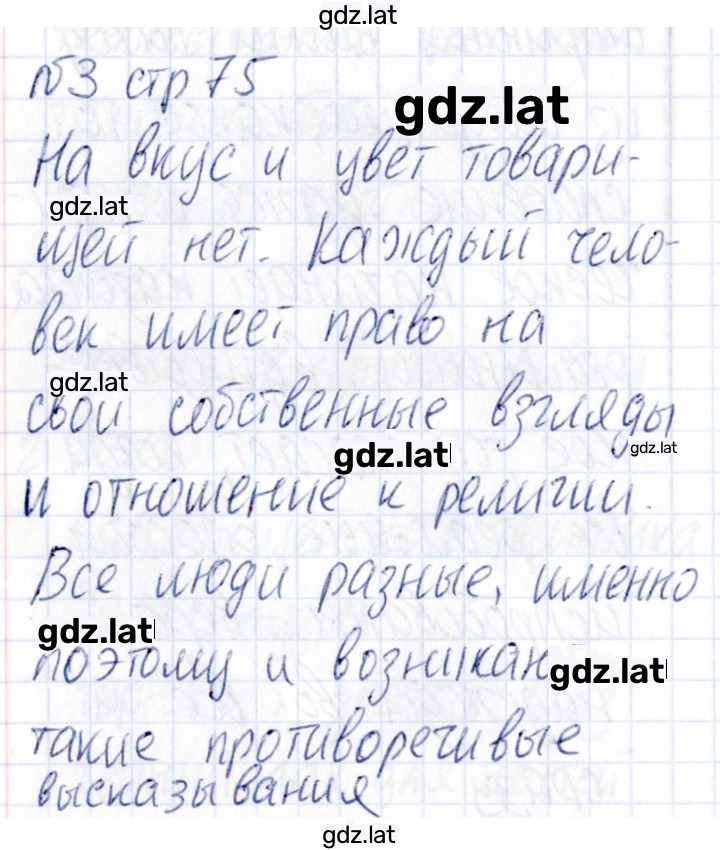 gdz.lat
№3 стр 75
gdz.lat
На вкус и цвет товари-
gdz.lat
щей нет. Каждый чело-
век имеет право на
gdz.lat
свои собственные взгляды
gdz.lat
gdz.lat
и отношение к религии.
Все люди разные, именно
gdz.lat
поэтому и возникан
gdz.lat
такие противоречивые
высказывания
gdz.lat